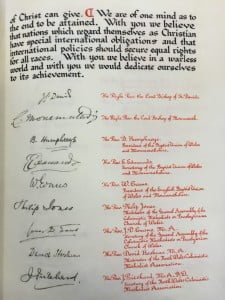 of Christ can give. We are of one mind as to
the end to be attained. With you we believe
that nations which regard themselves as Christian
have special international obligations and that
international policies should secure equal rights
for all races. With you we believe in a warless
world and with you we would dedicate ourselves
to its achievement.
The Right Rev. the Lord Bishop of St. Davids.
The Right Rev. the Lord Bishop of Monmouth.
B. Humphreys
The Rev. B. Humphreys.
President of the Baptist Union of Wales
and Monmouthshire.
The Rev. E. Edmunds.
Secretary of the Baptist Union of Wales
and Monmouthshire.
W. Evans
The Rev. W. Evans.
President of the English Baptist Union
of Wales and Monmouthshire.
Philip Jones
The Rev. Philip Jones.
Moderator of the General Assembly of the
Calvinistic Methodist or Presbyterian
Church of Wales.
The Rev. J.D. Evans, M.A.
Secretary of the General Assembly of the
Calvinistic Methodist or Presbyterian
Church of Wales.
David Hoskins
The Rev. David Hoskins, M.A.
of the North Wales Calvinistic
Methodist Association.
J. Pritchard
The Rev. J. Pritchard, M.A., B.D.
Secretary of the North Wales Calvinistic
Methodist Association.